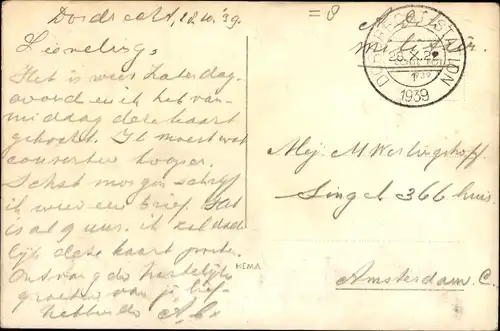 Dordrecht, 28.10.'39.
Lieveling,
Het is weer Zaterdag-
avond en ik heb van-
middag deze kaart
gekocht. Ik moest wat
hooger.
morgen schrijf
ik weer een brief. Het
is al 9 uur. Ik zal dade-
lijk deze kaart
Ontvang de hartelijke
groeten van je lief-
hebbende
KEMA
= 8
DORDRECHT STATION
28.X.39
1939
1
1939
militair.
Mej. M. Werlingshoff
Singel 366 huis.
Amsterdam. C.